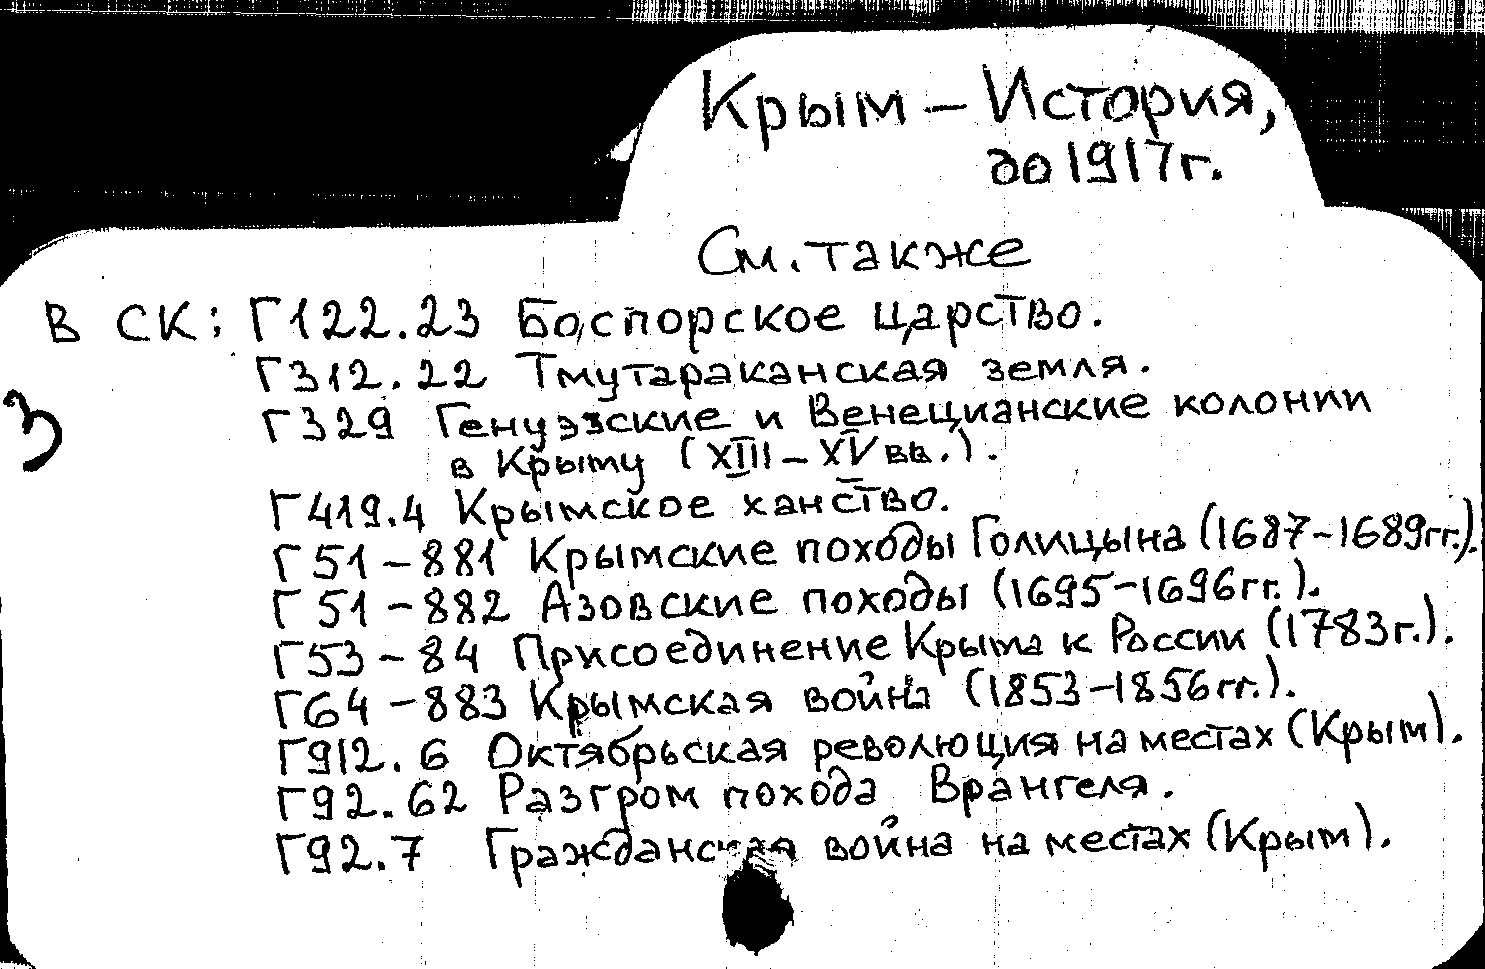 Крым – История,
до 1917г.
См. также
В СК: Г122.23 Боспорское царство.
Г312.22 Тмутараканская земля.
З
Г329 Генуэзские и Венецианские колонии
в Крыму (XIII – XV вв.).
Г419.4 Крымское ханство.
Г51–881 Крымские походы Голицына (1687–1689гг.).
Г51–882 Азовские походы (1695–1696гг.).
Г53–84 Присоединение Крыма к России (1783г.).
Г64–883 Крымская война (1853–1856гг.).
Г912.6 Октябрьская революция на местах (Крым).
Г92.62 Разгром похода Врангеля.
Г92.7 Гражданская война на местах (Крым).